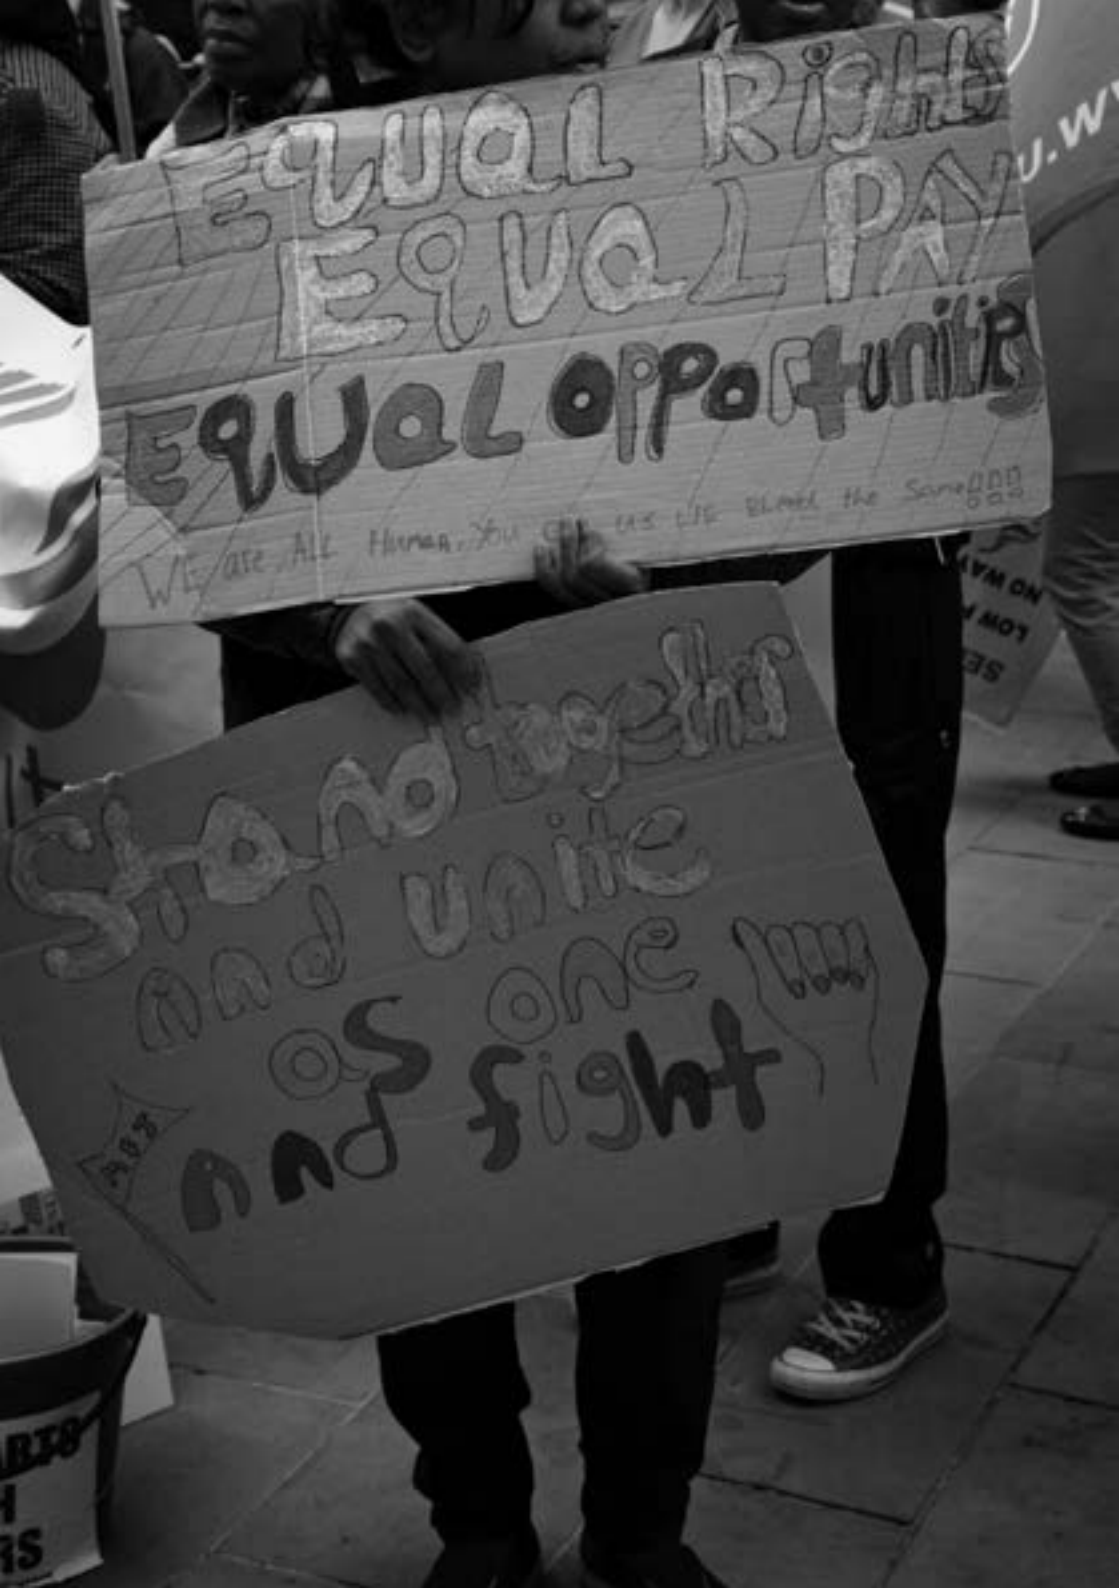 EqUAL RigHts
EqUAL PAY
EqUaL OppoRtunities
WE are ALL Human, You Cut us WE Bleed the Same!!!
Stand together
And unite
as one
And fight
u.w
NO WAY
LOW
SE
ARTS
H
RS